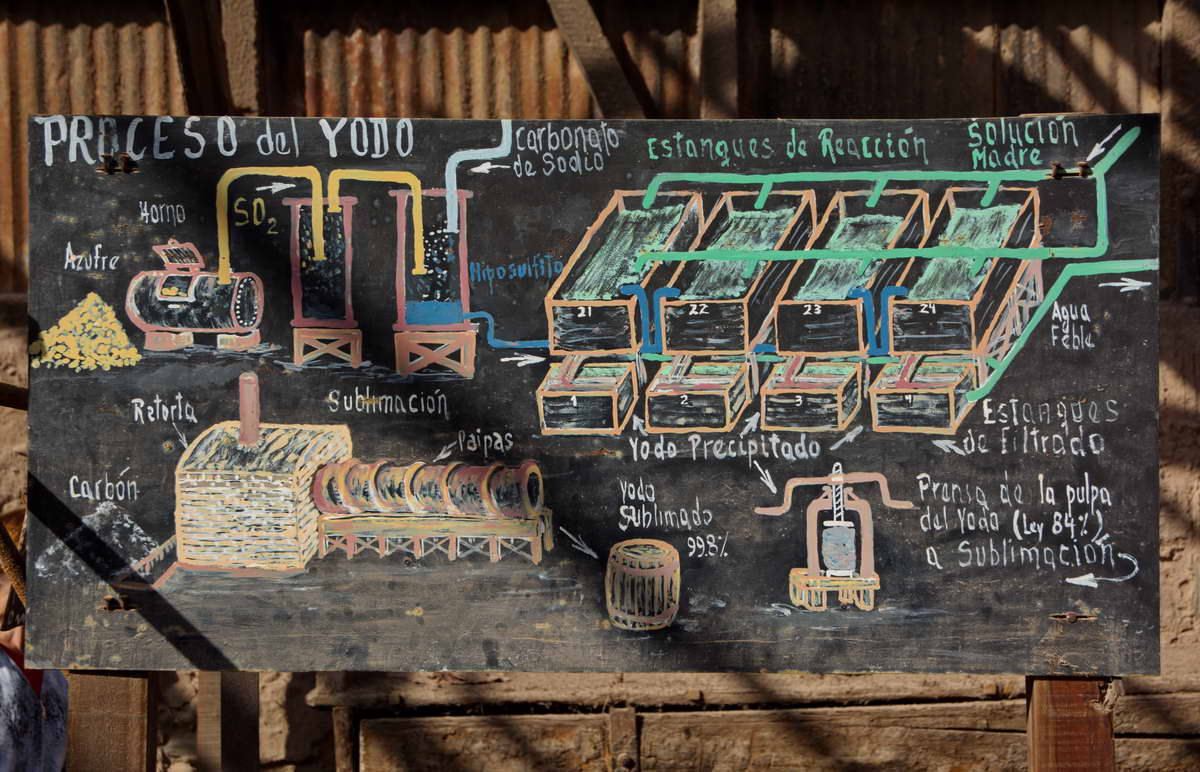 PROCESO del YODO
Carbonato
de Sodio
Estanques de Reacción
Solución
Madre
Horno
SO2
Azufre
Hiposulfito
21
22
23
24
Agua
Feble
1
2
3
4
Retorta
Sublimación
Paipas
Yodo Precipitado
Estanques
de Filtrado
Carbón
Yodo
Sublimado
99.8%
Prensa de la pulpa
del Yodo (Ley 84%)
a Sublimación